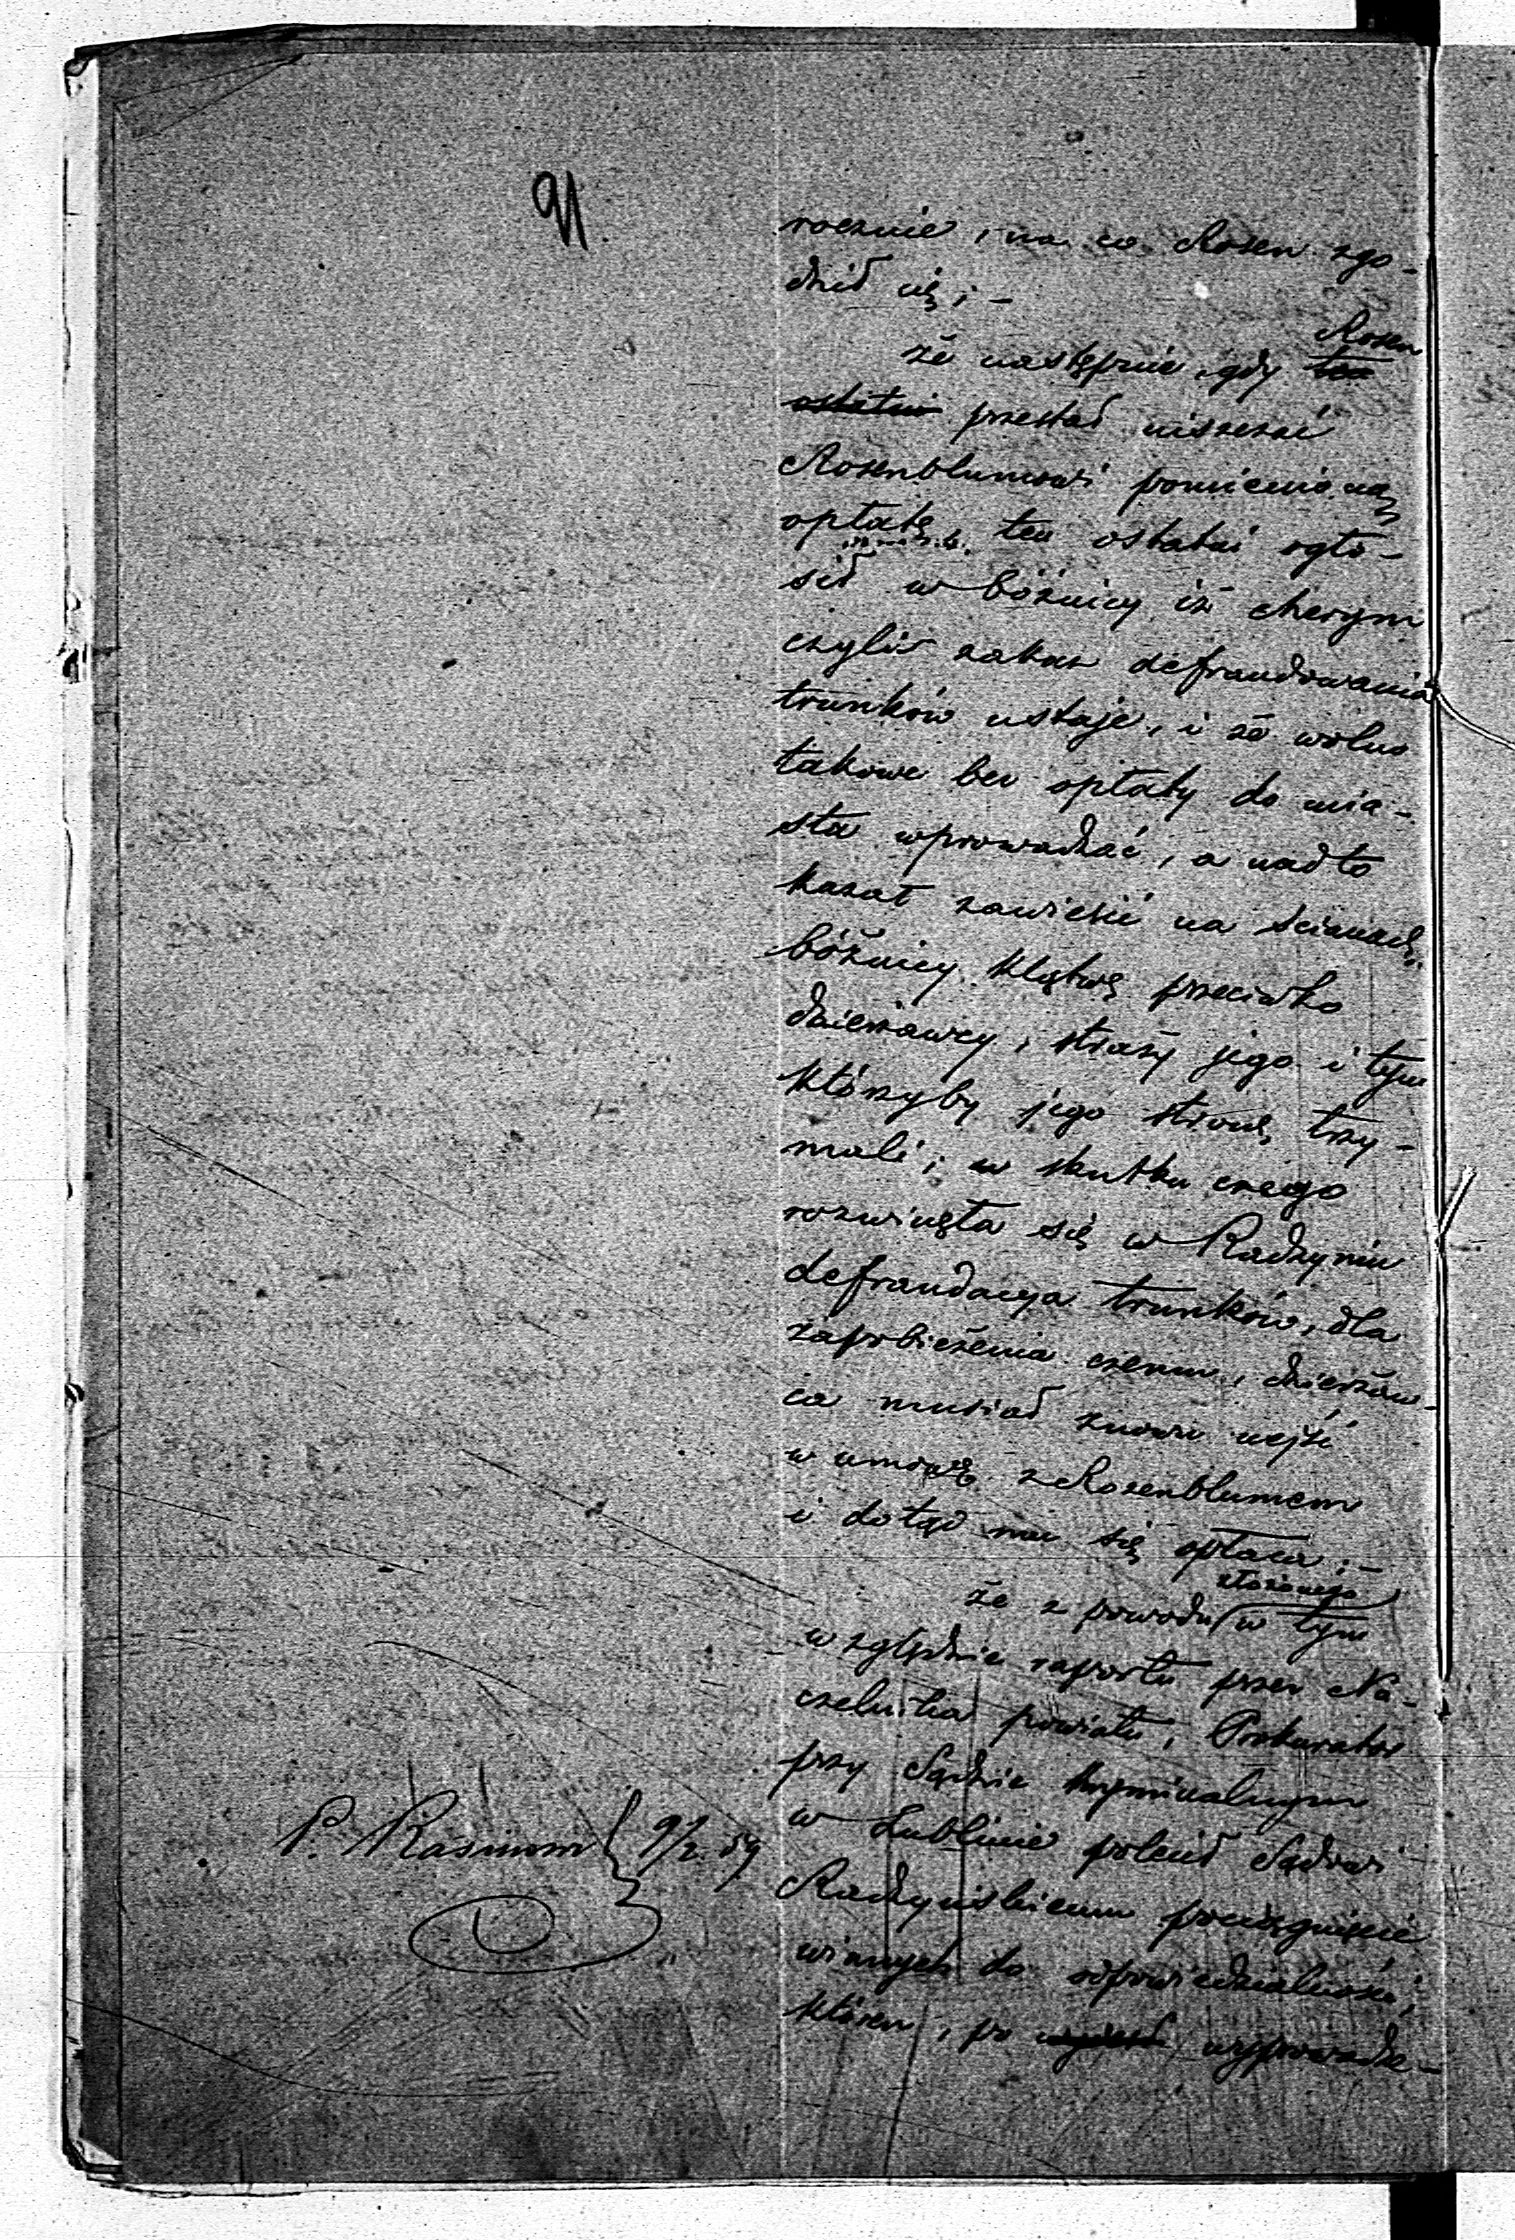 91.
rocznie, na co Rosen zgo-
dził się; -
że następnie, gdy ten Rosen
ostatni przestał uiszczać
Rosenblumowi pomienioną
opłatę, ten ostatni ogło-
sił w bóżnicy iż cherym
czyliż zakaz defraudowania
trunków ustaje, i że wolno
takowe bez opłaty do mia-
sta wprowadzać, a nadto
kazał zawiesić na ścianach
bóżnicy klątwę przeciwko
dzierżawcy, straży jego i tym
którzyby jego stronę trzy-
mali; w skutku czego
rozwinęła się w Radzyniu
defraudacya trunków, dla
zapobieżenia czemu, dzierżaw-
ca musiał znowu wejść
w umowę z Rosenblumem
i dotąd mu się opłaca; -
złożonego
że z powodu w tym
względzie raportu przez Na-
czelnika powiatu, Prokurator
przy Sądzie Kryminalnym
w Lublinie polecił Sądowi
Radzyńskiemu pociągnięcie
winnych do odpowiedzialności,
któren, po wyprowadze-
P. Rasinom 9/2. 59